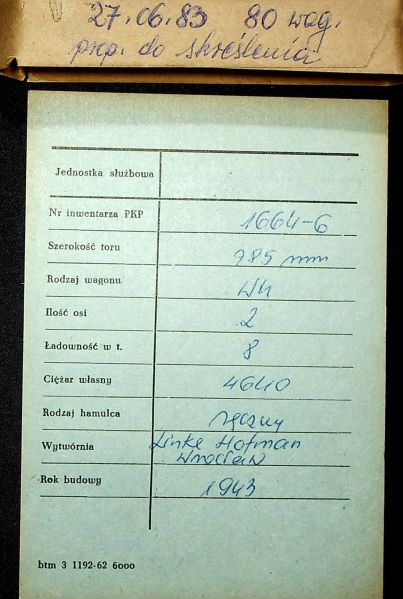 27.06.83 80 wag.
prop. do skreślenia
Jednostka służbowa
Nr inwentarza PKP 1664-6
Szerokość toru 785 mm
Rodzaj wagonu Wh
Ilość osi 2
Ładowność w t. 8
Ciężar własny 4640
Rodzaj hamulca ręczny
Wytwórnia Linke Hofman
Wrocław
Rok budowy 1943
btm 3 1192-62 6000